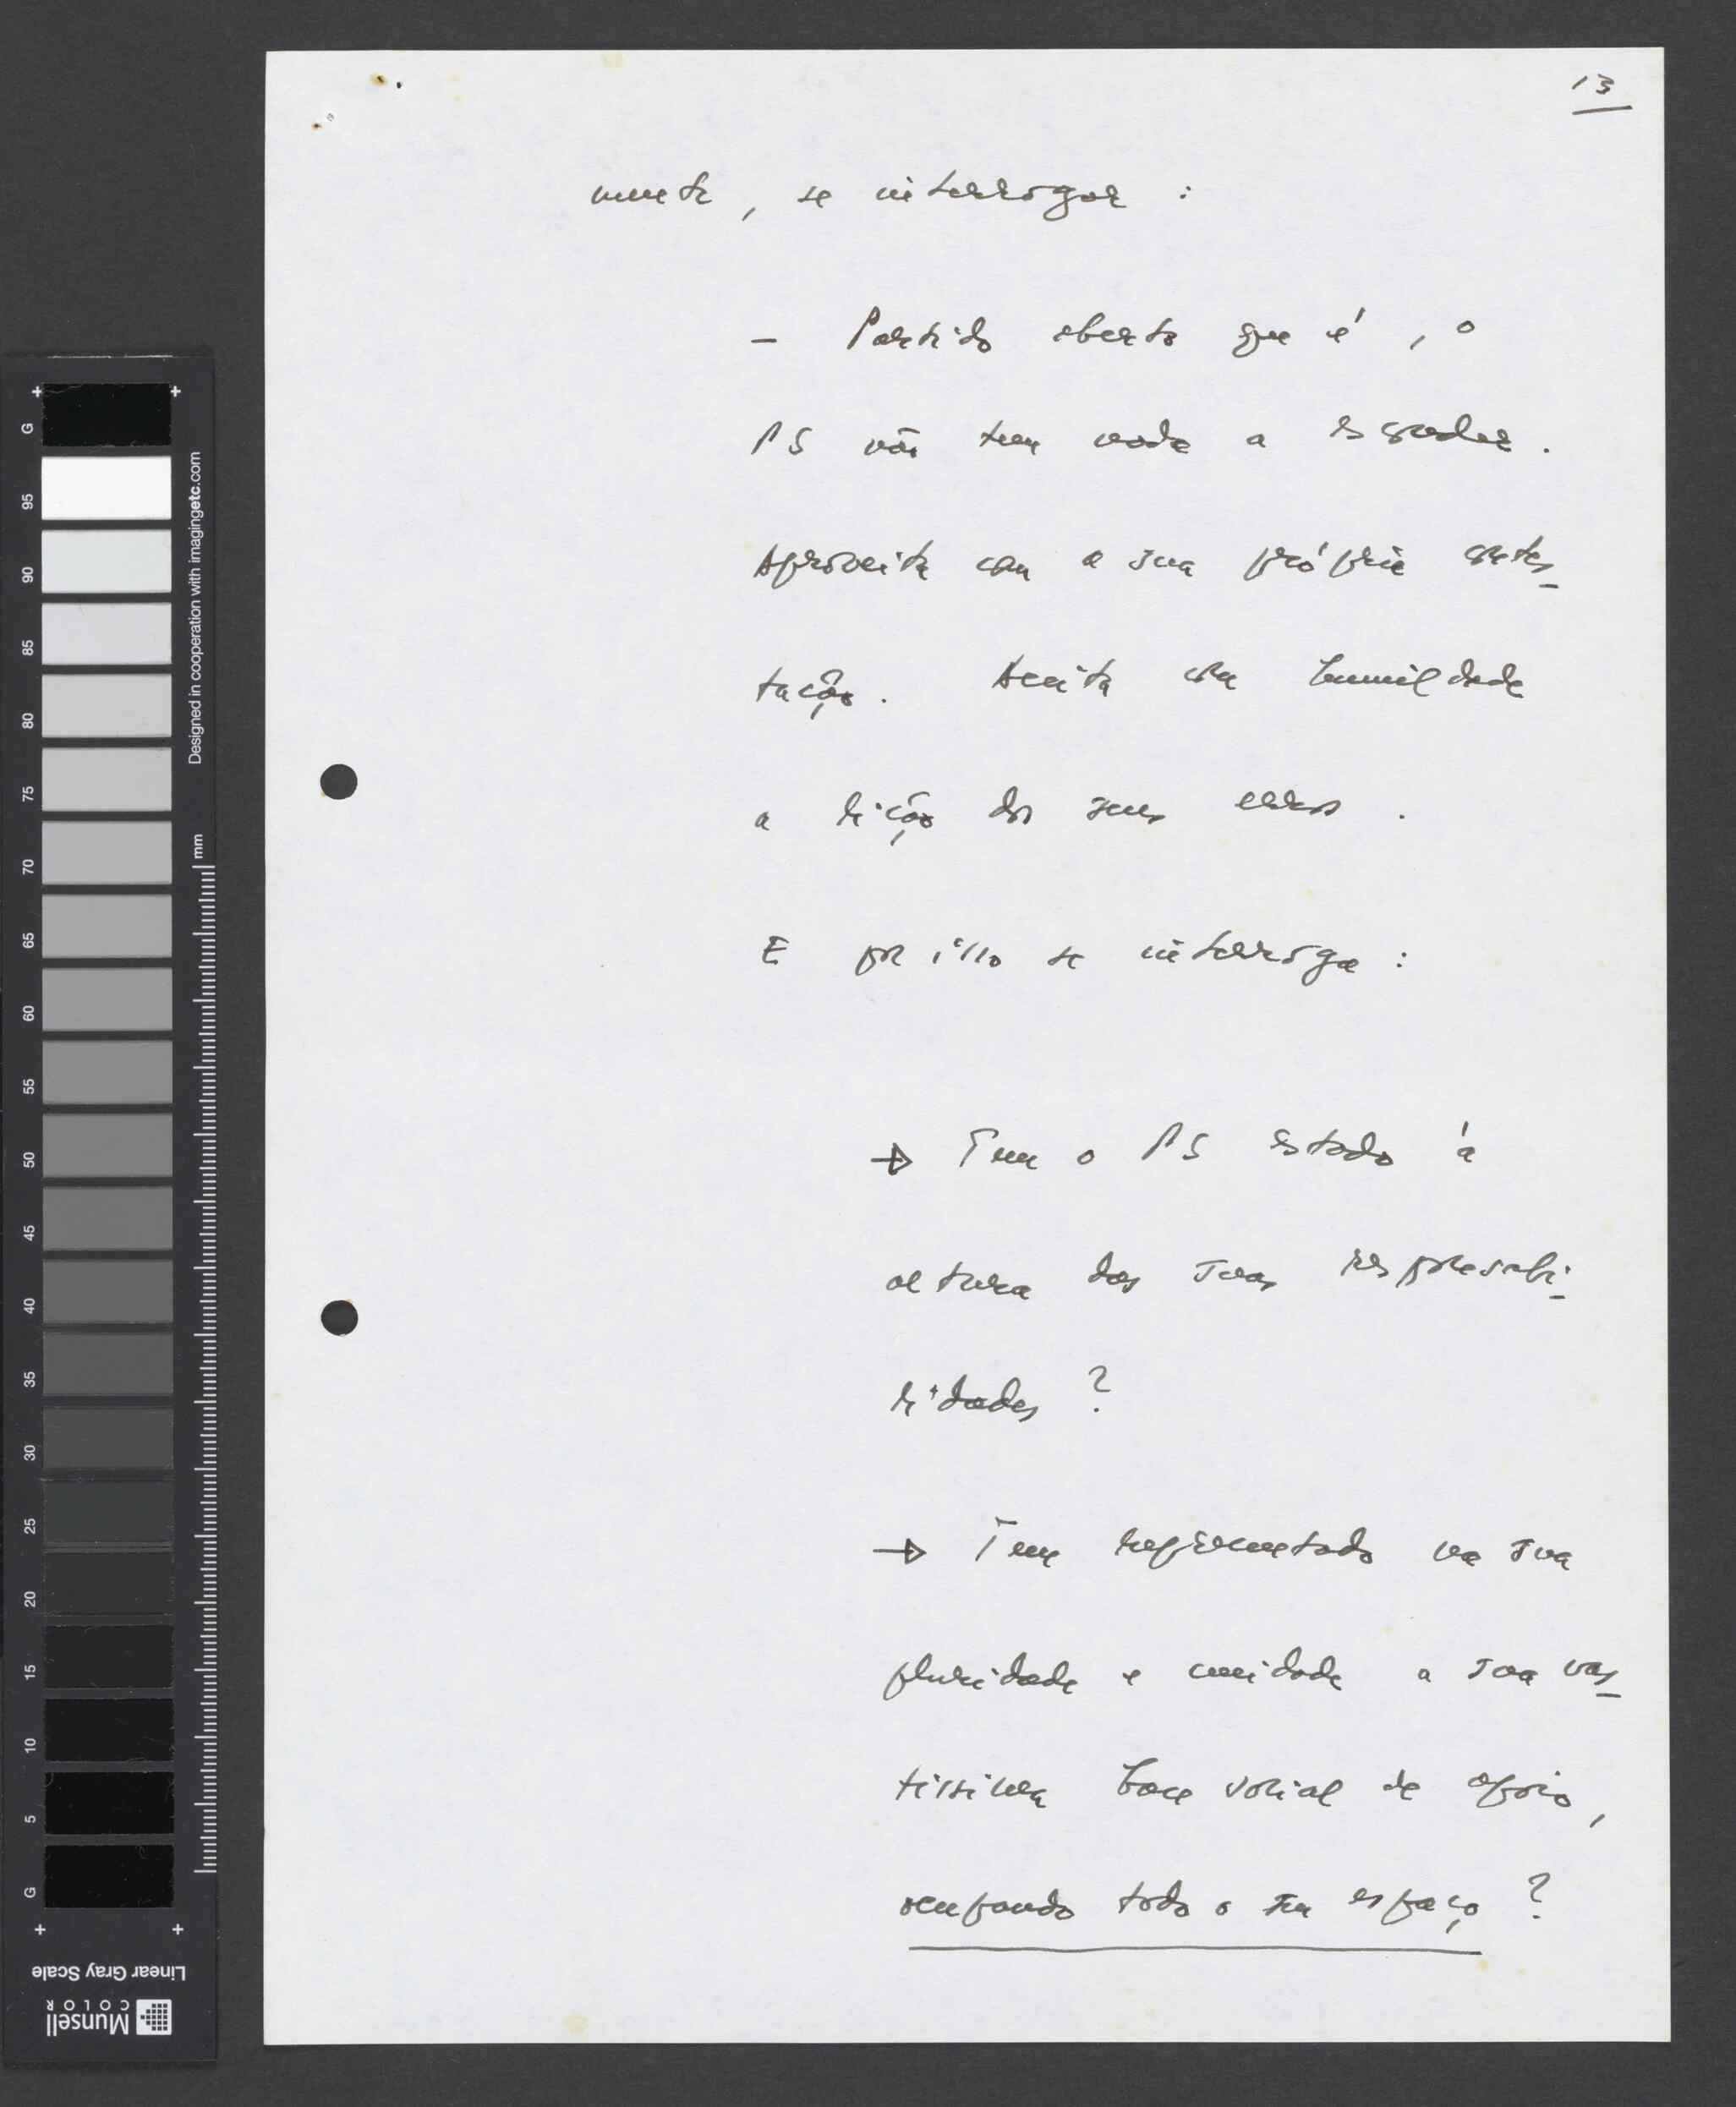 13
mente, se interrogar :
- Partido aberto que é, o
PS não tem nada a esconder.
Aproveita com a sua própria contes-
tação. Aceita com humildade
a lição dos seus erros.
E por isso se interroga :
→ Tem o PS estado à
altura das suas responsabi-
lidades ?
→ Tem representado na sua
pluralidade e unidade a sua vas-
tíssima base social de apoio,
ocupando todo o seu espaço ?
G
95
90
85
80
75
70
65
60
55
50
45
40
35
30
25
20
15
10
5
G
Designed in cooperation with imagingetc.com
mm
Linear Gray Scale
Munsell
COLOR